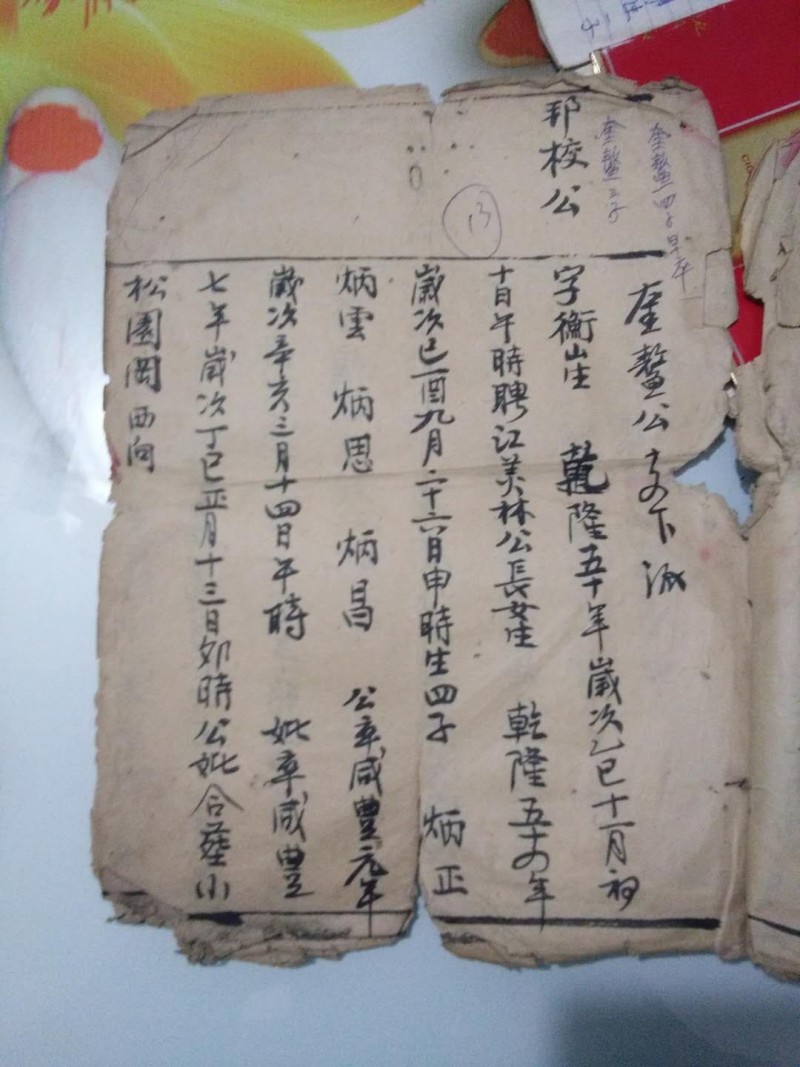 奎鰲四子早卒
奎鰲三子
邦校公
13
奎鰲公支下派
字衡山生 乾隆五十年歲次乙巳十一月初
十日午時聘江美林公長女生 乾隆五十四年
歲次己酉九月二十六日申時生四子 炳正
炳雲 炳思 炳昌 公卒咸豐元年
歲次辛亥三月十四日午時 妣卒咸豐
七年歲次丁巳正月十三日卯時公妣合葬小
松園岡西向